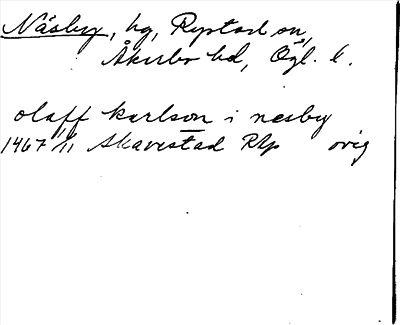 Näsby, hg, Rystad sn,
Åkerbo hd, Ögl. l.
olaff karlson i nesby
1467 1/1 Skavestad RAp orig